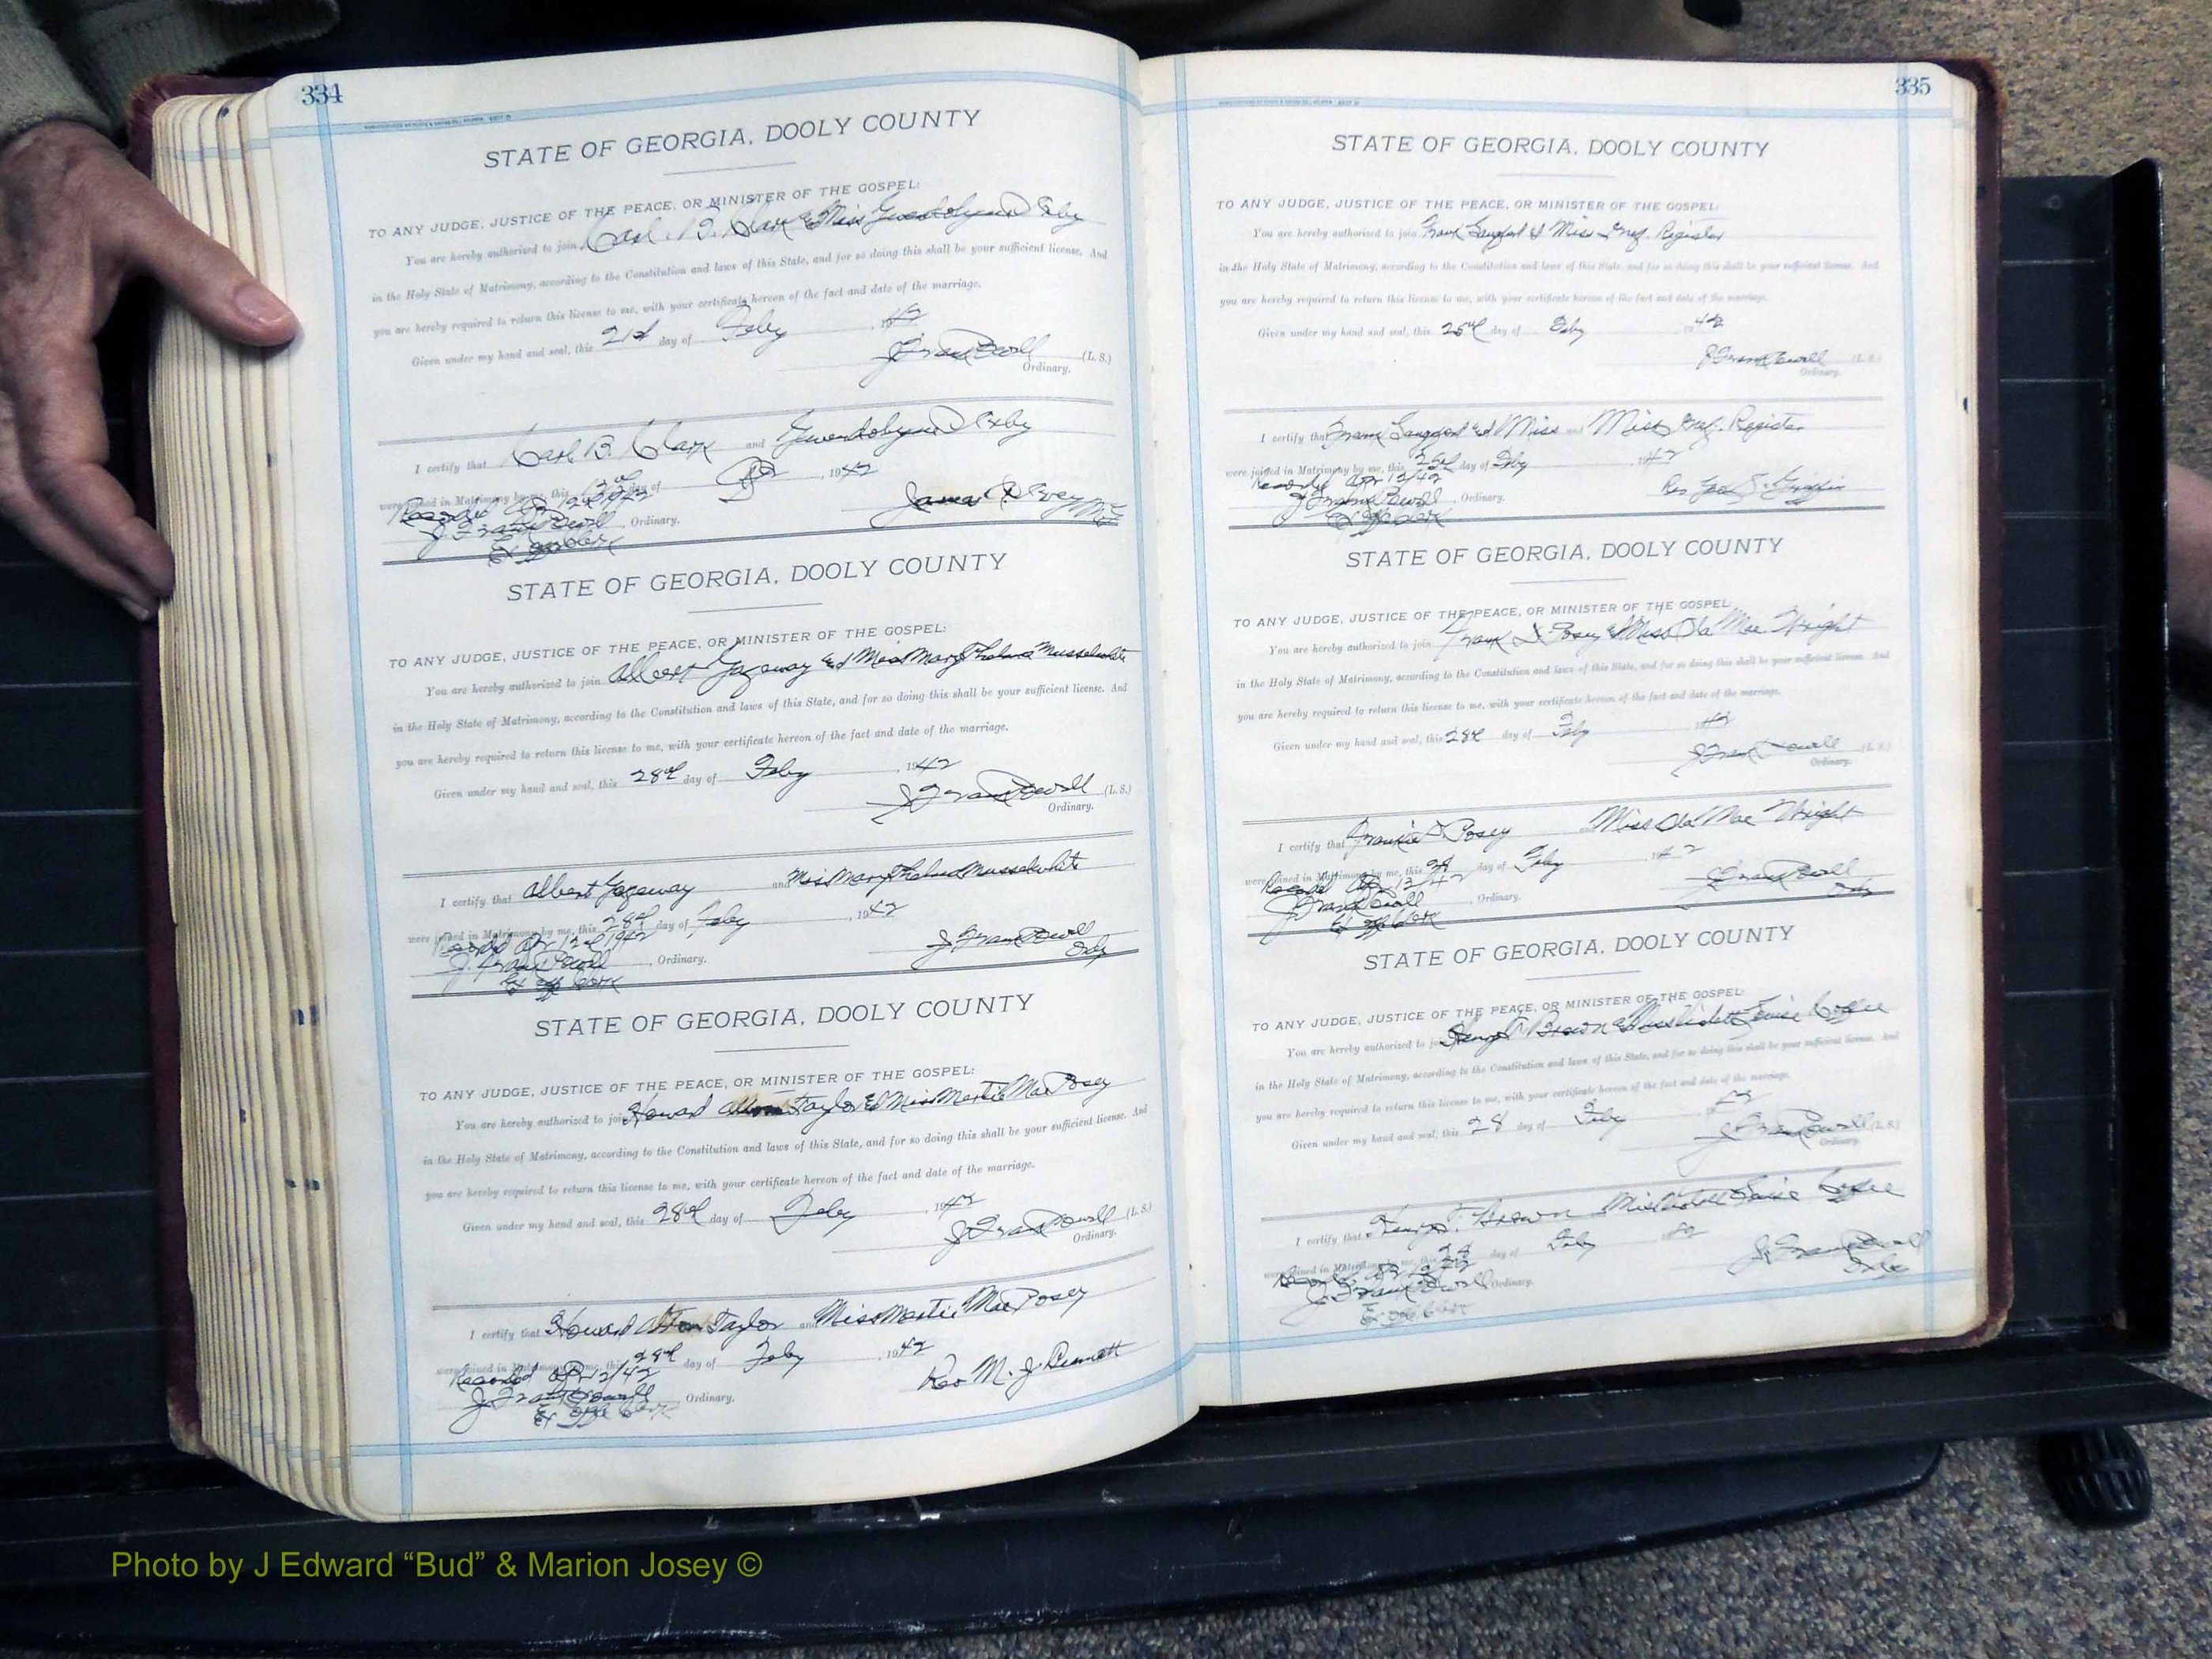 334
STATE OF GEORGIA, DOOLY COUNTY
TO ANY JUDGE, JUSTICE OF THE PEACE, OR MINISTER OF THE GOSPEL:
You are hereby authorized to join Carl B. Clark & Miss Gwendolyn
in the Holy State of Matrimony, according to the Constitution and laws of this State, and for so doing this shall be your sufficient license. And
you are hereby required to return this license to me, with your certificate hereon of the fact and date of the marriage.
Given under my hand and seal, this 21st day of Feby, 1942
J Frank Powell (L. S.)
Ordinary.
I certify that Carl B. Clark and Gwendolyn
were joined in Matrimony by me, this day of , 1942
Recorded Apr 12 1942 James
J Frank Powell, Ordinary.
Ex off Clerk
STATE OF GEORGIA, DOOLY COUNTY
TO ANY JUDGE, JUSTICE OF THE PEACE, OR MINISTER OF THE GOSPEL:
You are hereby authorized to join Albert Gazeway & Miss Mary Thelma Musselwhite
in the Holy State of Matrimony, according to the Constitution and laws of this State, and for so doing this shall be your sufficient license. And
you are hereby required to return this license to me, with your certificate hereon of the fact and date of the marriage.
Given under my hand and seal, this 28th day of Feby, 1942
J Frank Powell (L. S.)
Ordinary.
I certify that Albert Gazeway and Miss Mary Thelma Musselwhite
were joined in Matrimony by me, this 28th day of Feby, 1942
Recorded Apr 12 1942 J Frank Powell
J. Frank Powell, Ordinary. Ordy
Ex off Clerk
STATE OF GEORGIA, DOOLY COUNTY
TO ANY JUDGE, JUSTICE OF THE PEACE, OR MINISTER OF THE GOSPEL:
You are hereby authorized to join Howard Alton Taylor & Miss Mertie Mae Posey
in the Holy State of Matrimony, according to the Constitution and laws of this State, and for so doing this shall be your sufficient license. And
you are hereby required to return this license to me, with your certificate hereon of the fact and date of the marriage.
Given under my hand and seal, this 28th day of Feby, 1942
J Frank Powell (L. S.)
Ordinary.
I certify that Howard Alton Taylor and Miss Mertie Mae Posey
were joined in Matrimony by me, this 28th day of Feby, 1942
Recorded Apr 12/42 Rev M. J.
J Frank Powell, Ordinary.
Ex off Clerk
335
STATE OF GEORGIA, DOOLY COUNTY
TO ANY JUDGE, JUSTICE OF THE PEACE, OR MINISTER OF THE GOSPEL:
You are hereby authorized to join Frank & Miss Register
in the Holy State of Matrimony, according to the Constitution and laws of this State, and for so doing this shall be your sufficient license. And
you are hereby required to return this license to me, with your certificate hereon of the fact and date of the marriage.
Given under my hand and seal, this 25th day of Feby 1942
J Frank Powell (L. S.)
Ordinary.
I certify that Frank & Miss and Miss Register
were joined in Matrimony by me, this 25th day of Feby, 1942
Recorded Apr 12/42 Rev Geo S. Griffin
J Frank Powell, Ordinary.
Ex off Clerk
STATE OF GEORGIA, DOOLY COUNTY
TO ANY JUDGE, JUSTICE OF THE PEACE, OR MINISTER OF THE GOSPEL:
You are hereby authorized to join Frank D. Posey & Miss Ola Mae Wright
in the Holy State of Matrimony, according to the Constitution and laws of this State, and for so doing this shall be your sufficient license. And
you are hereby required to return this license to me, with your certificate hereon of the fact and date of the marriage.
Given under my hand and seal, this 28th day of Feby 1942
J Frank Powell (L. S.)
Ordinary.
I certify that Frankie D Posey Miss Ola Mae Wright
were joined in Matrimony by me, this 28 day of Feby, 1942
Recorded Apr 12/42 J Frank Powell
J Frank Powell, Ordinary. Ordy
Ex off Clerk
STATE OF GEORGIA, DOOLY COUNTY
TO ANY JUDGE, JUSTICE OF THE PEACE, OR MINISTER OF THE GOSPEL:
You are hereby authorized to join Henry T. Brown & Miss Louise
in the Holy State of Matrimony, according to the Constitution and laws of this State, and for so doing this shall be your sufficient license. And
you are hereby required to return this license to me, with your certificate hereon of the fact and date of the marriage.
Given under my hand and seal, this 28 day of Feby 1942
J Frank Powell (L. S.)
Ordinary.
I certify that Henry T. Brown Miss Louise
were joined in Matrimony by me, this 28 day of Feby 1942
Recorded Apr 12/42 J. Frank Powell
J. Frank Powell Ordinary. Ordy
Ex off Clerk
Photo by J Edward “Bud” & Marion Josey ©